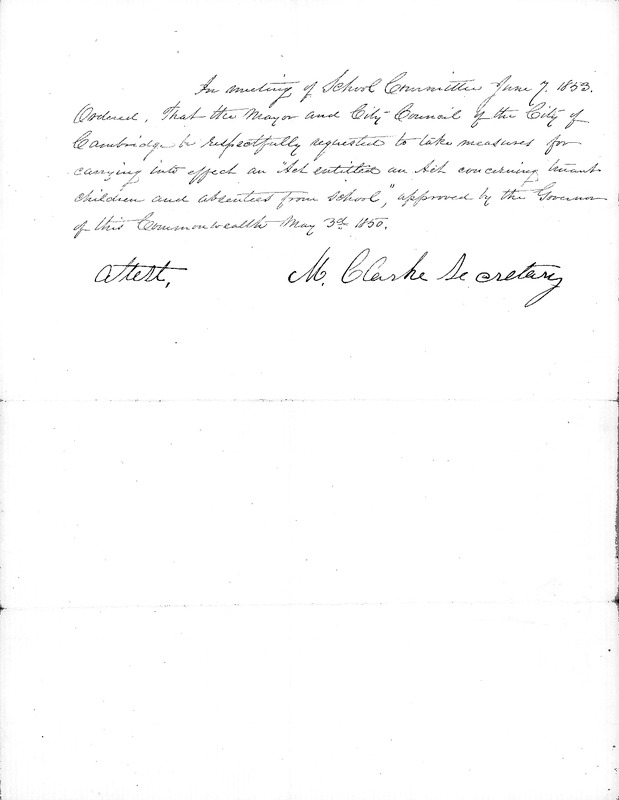 In meeting of School Committee June 7. 1853.
Ordered, That the Mayor and City Council of the City of
Cambridge be respectfully requested to take measures for
carrying into effect an "Act entitled an Act concerning truant
children and absentees from school," approved by the Governor
of this Commonwealth May 3d. 1850.
Attest, M. Clarke Secretary